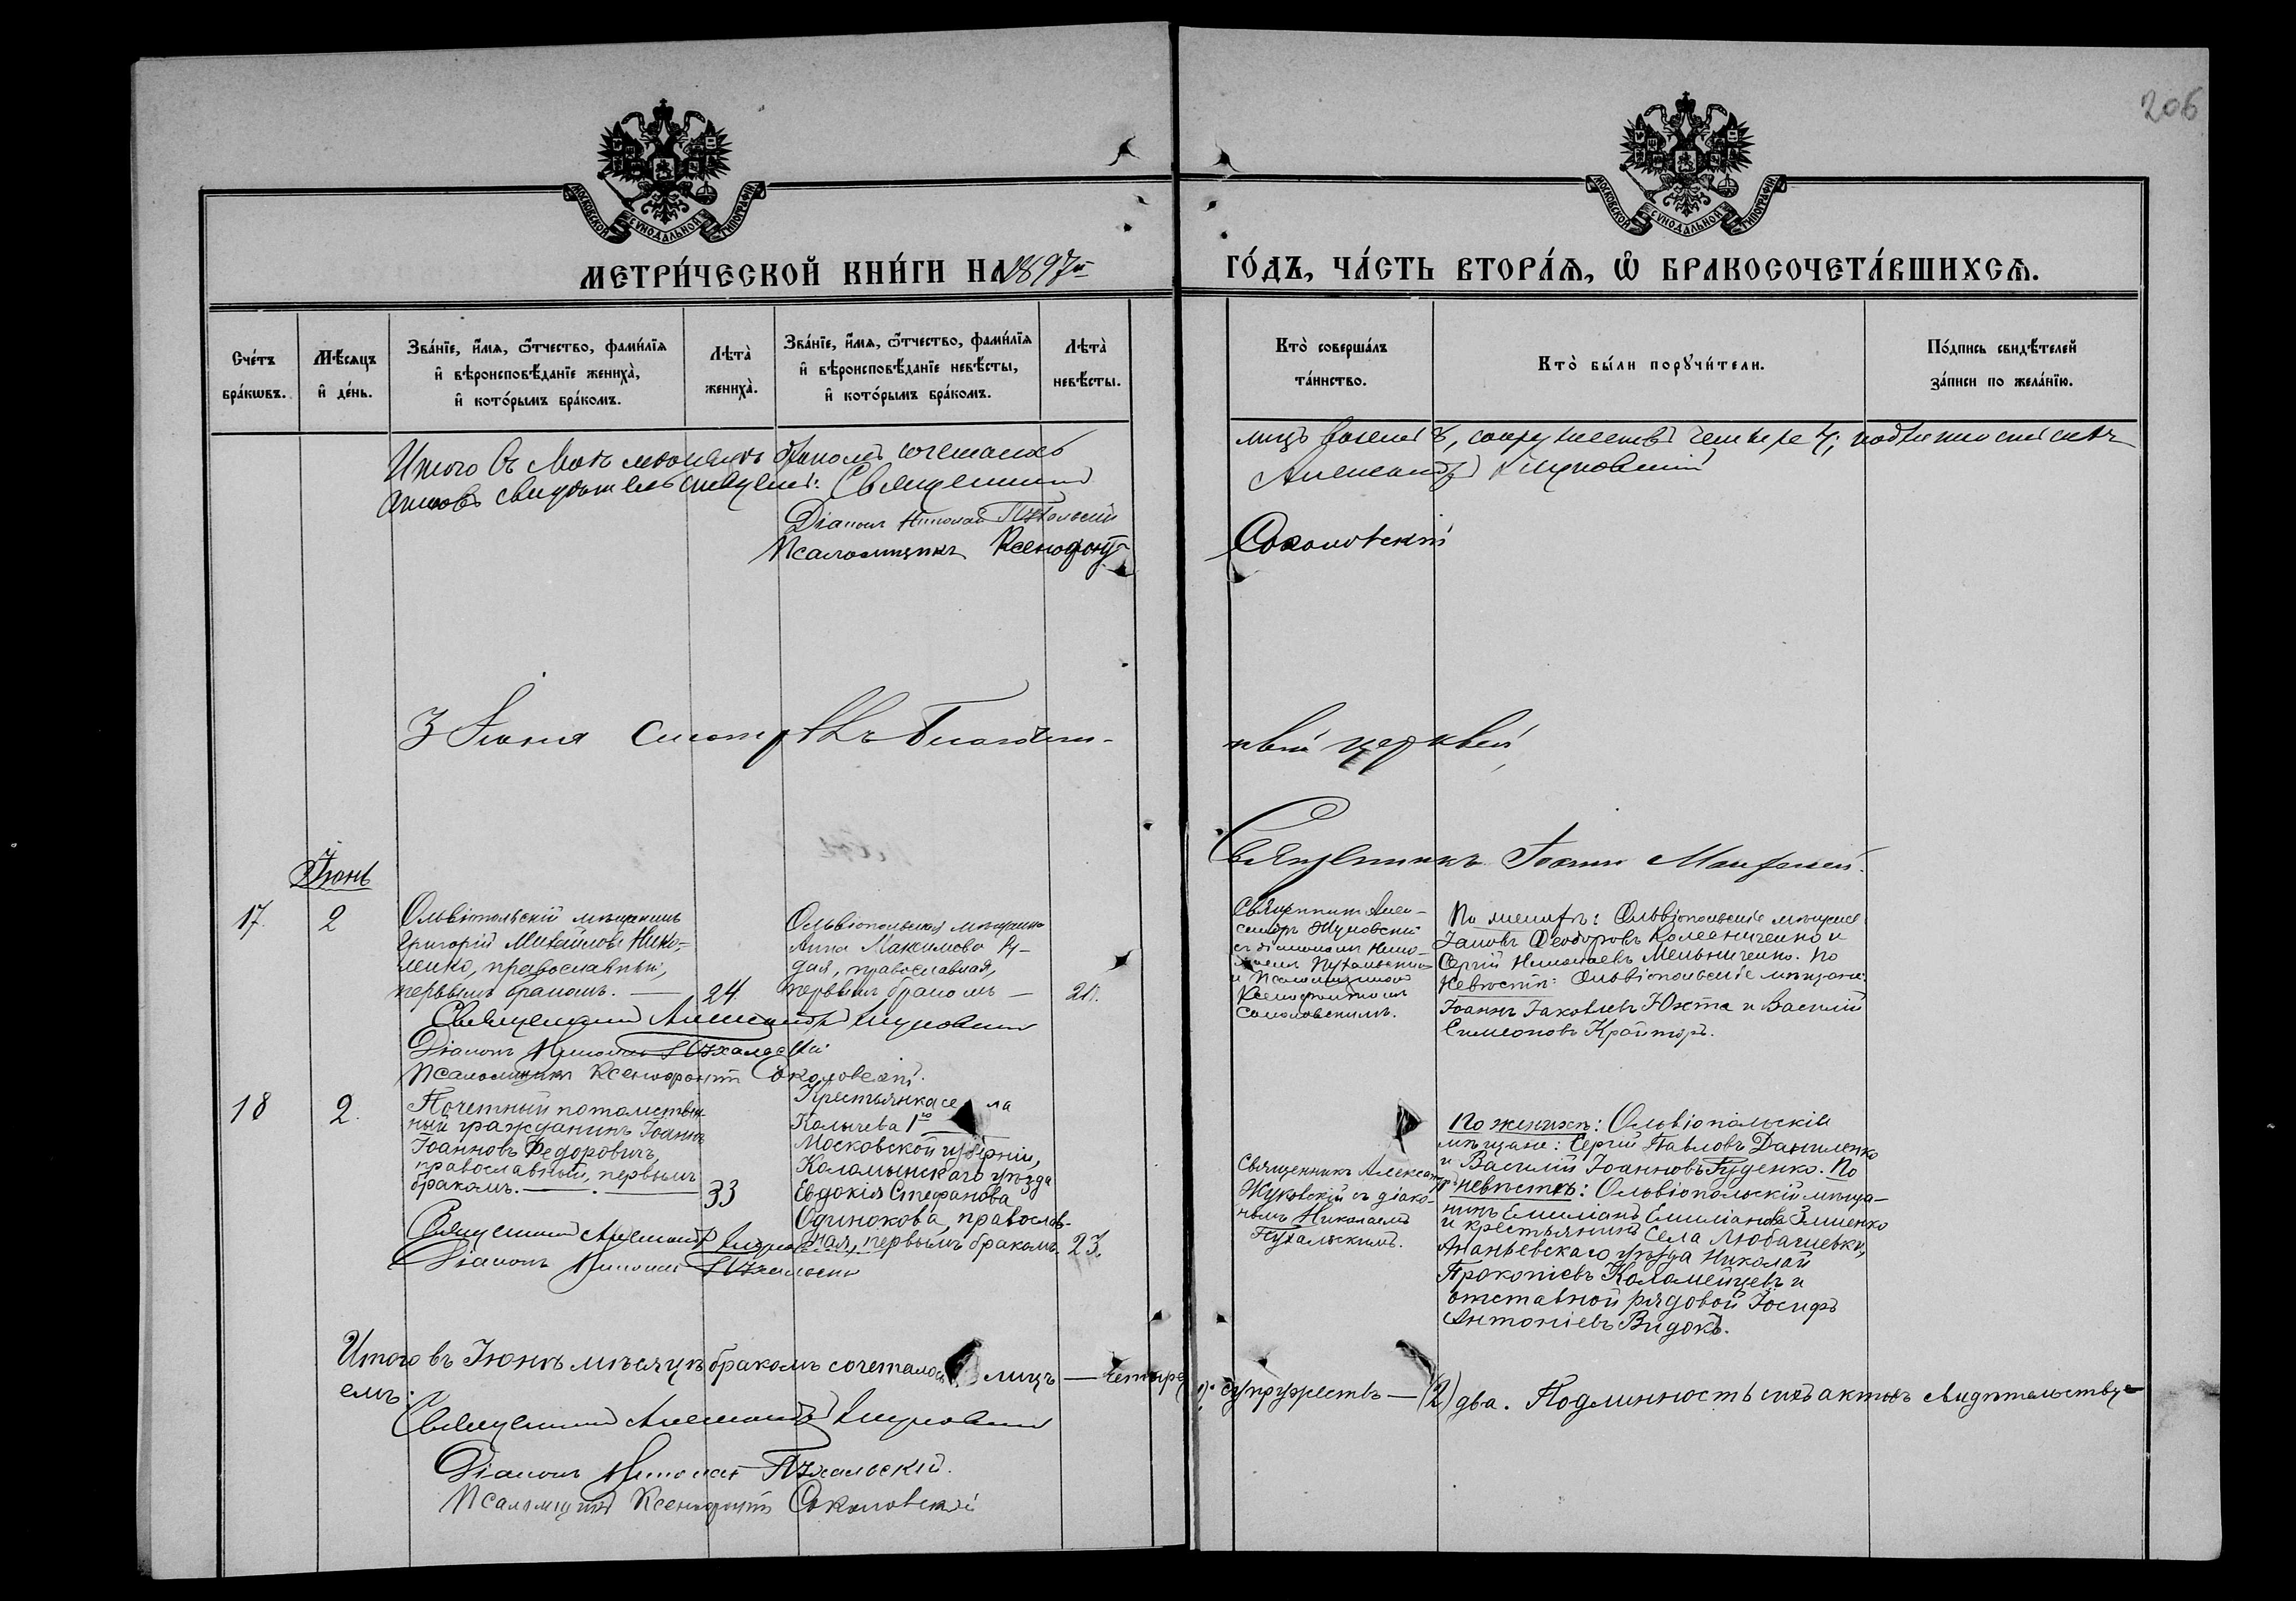 206
МОСКОВСКОЙ СѴНОДАЛЬНОЙ ТИПОГРАФІИ
МОСКОВСКОЙ СѴНОДАЛЬНОЙ ТИПОГРАФІИ
МЕТРИ́ЧЕСКОЙ КНИ́ГИ НА 1897й
ГО́ДЪ, ЧА́СТЬ ВТОРА́Ѧ, Ѡ҆ БРАКОСОЧЕТА́ВШИХСѦ.
Сче́тъ
бра́кѡвъ.
Мѣ́сяцъ
и҆ де́нь.
Зва́нїе, и҆́мѧ, ѻ҆́тчество, фами́лїѧ
и҆ вѣроисповѣ́данїе жениха̀,
и҆ кото́рымъ бра́комъ.
Лѣта̀
жениха̀.
Зва́нїе, и҆́мѧ, ѻ҆́тчество, фами́лїѧ
и҆ вѣроисповѣ́данїе невѣ́сты,
и҆ кото́рымъ бра́комъ.
Лѣта̀
невѣ́сты.
Кто̀ соверша́лъ
та́инство.
Кто̀ бы́ли порꙋчи́тели.
По́дпись свидѣ́телей
за́писи по жела́нїю.
Итого въ Маѣ мѣсяцѣ бракомъ сочеталось
лицъ восемь 8, супружествъ четыре 4; подлинность сихъ
актовъ свидѣтельствуемъ: Священникъ
Александръ Жуковскій
Діаконъ Николай Пухальскій
Псаломщикъ Ксенофонтъ
Соколовскій
3 Іюня смотрѣлъ Благочин-
ный церквей,
Священникъ Іоаннъ
Іюнь
17.
2
Ольвіопольскій мѣщанинъ
Григорій Михайловъ Нико-
ленко, православный,
первымъ бракомъ. —
24
Ольвіопольская мѣщанка
Анна Максимова
дая, православная,
первымъ бракомъ —
21.
Священникъ Алек-
сандръ Жуковскій
съ діакономъ Нико-
лаемъ Пухальскимъ
и Псаломщикомъ
Ксенофонтомъ
Соколовскимъ.
По женихѣ: Ольвіопольскіе мѣщане
Іаковъ Ѳеодоровъ Колесниченко и
Сергій Николаевъ Мельниченко. По
невѣстѣ: Ольвіопольскіе мѣщане:
Іоаннъ Іаковлевъ Юхта и Василій
Симеоновъ Крайторъ.
Священникъ Александръ Жуковскій
Діаконъ Николай Пухальскій
Псаломщикъ Ксенофонтъ Соколовскій.
18
2.
Почетный потомствен
ный гражданинъ Іоаннъ
Іоанновъ Федоровичъ,
православный, первымъ
бракомъ. —
33
Крестьянка села
Колычева 1го
Московской губерніи,
Коломынскаго уѣзда
Евдокія Стефанова
Одинокова, православ-
ная, первымъ бракомъ.
23.
Священникъ Александръ
Жуковскій съ діако-
номъ Николаемъ
Пухальскимъ.
По женихѣ: Ольвіопольскіе
мѣщане: Сергій Павловъ Даниленко
и Василій Іоанновъ Гуденко. По
невѣстѣ: Ольвіопольскій мѣща-
нинъ Емиліанъ Емиліановъ Зміенко
и крестьянинъ села Любашевки,
Ананьевскаго уѣзда Николай
Прокопіевъ Коломейцевъ и
отставной рядовой Іосифъ
Антоніевъ Видокъ.
Священникъ Александръ Жуковскій
Діаконъ Николай Пухальскій
Итого въ Іюнѣ мѣсяцѣ бракомъ сочеталось лицъ — четыре
супружествъ — (2) два. Подлинность сихъ актовъ свидѣтельству-
емъ:
Священникъ Александръ Жуковскій
Діаконъ Николай Пухальскій.
Псаломщикъ Ксенофонтъ Соколовскій